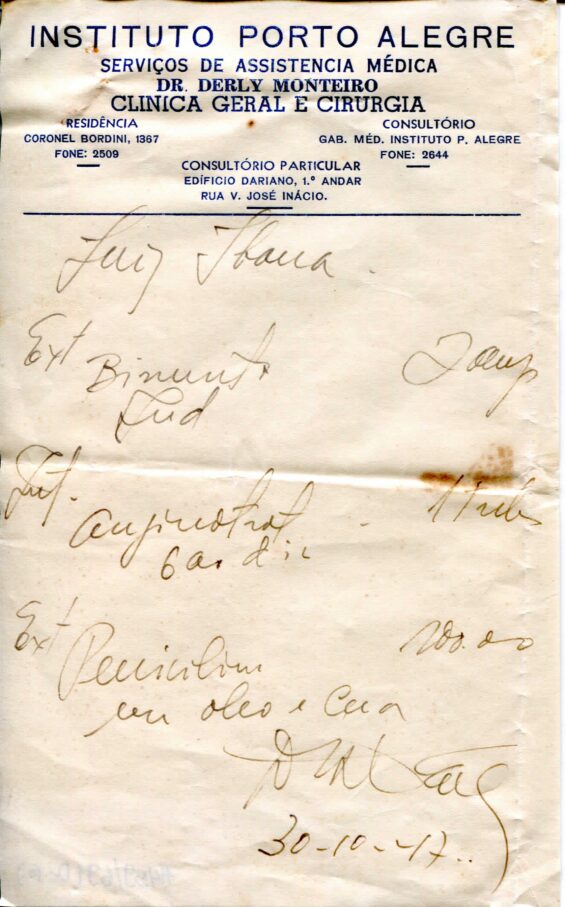 INSTITUTO PORTO ALEGRE
SERVIÇOS DE ASSISTENCIA MÉDICA
DR. DERLY MONTEIRO
CLINICA GERAL E CIRURGIA
RESIDÊNCIA
CORONEL BORDINI, 1367
FONE: 2509
CONSULTÓRIO
GAB. MÉD. INSTITUTO P. ALEGRE
FONE: 2644
CONSULTÓRIO PARTICULAR
EDÍFICIO DARIANO, 1.º ANDAR
RUA V. JOSÉ INÁCIO.
Luiz
Ext
Int.
1 tubo
6 ao dia
Ext
Penicilina 200.000
em oleo e cera
30-10-47